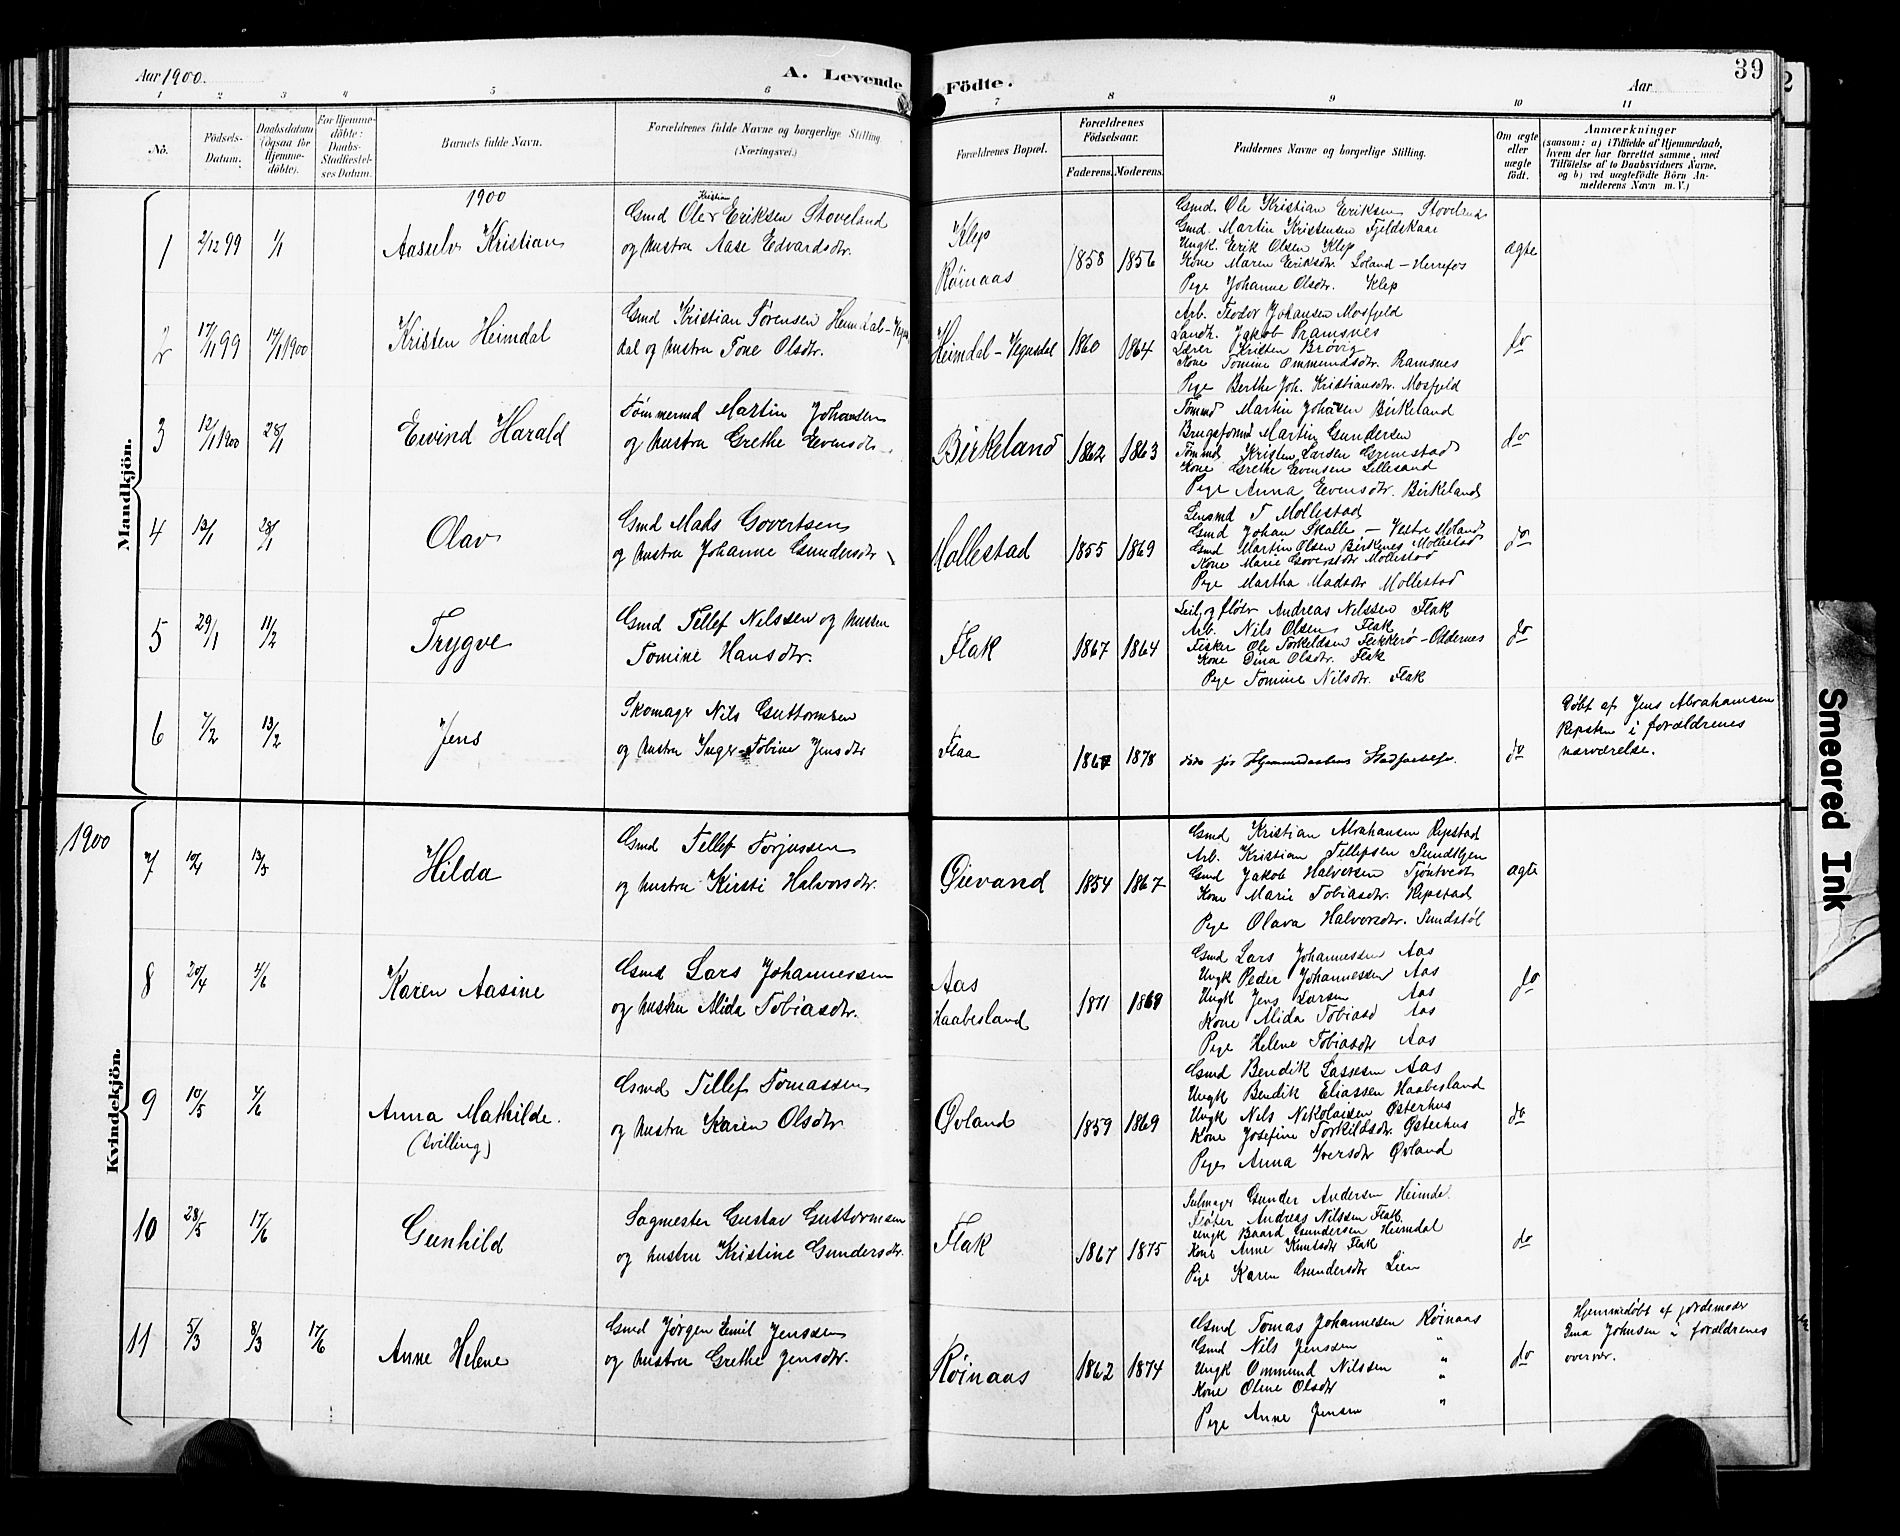 Aar 1900.
A. Levende
Födte.
Aar
39
1 2 3 4 5 6 7 8 9 10 11
No.
Födsels-
Datum.
Daabsdatum
(ogsaa for
Hjemme-
döbte).
For Hjemme-
döbte:
Daabs-
Stadfæstel-
ses Datum.
Barnets fulde Navn.
Forældrenes fulde Navne og borgerlige Stilling
(Næringsvei.)
Forældrenes Bopæl.
Forældrenes
Födselsaar.
Faderens.
Moderens.
Faddernes Navne og borgerlige Stilling.
Om ægte
eller
uægte
født.
Anmærkninger
(saasom: a) i Tilfælde af Hjemmedaab,
hvem der har forrettet samme, med
Tilföielse af to Daabsvidners Navne,
og b) ved uægtefödte Börn An-
melderens Navn m. V.)
Mandkjön.
1900
1
2/12 99
1/1
Aasulv Kristian
Kristian
Gmd Ole Eriksen Stoveland
og hustru Aase Edvardsdtr.
Klep
Røinaas
1858
1856
Gmd. Ole Kristian Eriksen Stoveland
Gmd. Martin Kristensen Fjeldskaar
Ungk. Erik Olsen Klep
Kone Maren Eriksdtr. Loland - Herrefos
Pige Johanne Olsdtr. Klep
ægte
2
17/11 99
14/1 1900
Kristen Heimdal
Gmd Kristian Sørensen Heimdal - Vegus
dal og hustru Tone Olsdtr.
Heimdal - Vegusdal
1860
1864
Arb. Teodor Johansen Mosfjeld
Landh. Jakob Ramsnes
Lærer Kristen Brøvig
Kone Tomine Ommundsdtr. Ramsnes
Pige Berthe Joh. Kristiansdtr. Mosfjeld
do
3
12/1 1900
28/1
Eivind Harald
Tømmermd Martin Johansen
og hustru Grethe Evensdtr.
Birkeland
1862
1863
Tømmd Martin Johansen Birkeland
Brugsformd Martin Gundersen
Tømmd Kristen Larsen Grimstad
Kone Grethe Evensen Lillesand
Pige Anna Evensdtr. Birkeland
do
4
13/1
28/1
Olav
Gmd Mads Govertsen
og hustru Johanne Gundersdtr
Mollestad
1855
1869
Lensmd T Mollestad
Gmd Johan Skalle - Vestre Moland
Gmd Martin Olsen Birkenes Mollestad
Kone Marie Govertsdtr Mollestad
Pige Martha Madsdtr Mollestad
do
5
29/1
11/2
Trygve
Gmd Tellef Nilssen og hustru
Tomine Hansdtr.
Flak
1867
1864
Seil. og fløter Andreas Nilssen Flak
Arb. Nils Olsen Flak
Fisker Ole Torkeldsen Flekkerø - Oddernes
Kone Dina Olsdtr. Flak
Pige Tomine Nilsdtr. Flak
do
6
7/2
13/2
Jens
Skomager Nils Guttormsen
og hustru Inger Tobine Jensdtr
Flaa
1867
1878
døde før Hjemmedaabens Stadfæstelse.
do
Døbt af Jens Abrahamsen
Repstad i forældrenes
nærværelse.
Kvindekjön.
1900
7
10/4
13/5
Hilda
Gmd Tellef Torjussen
og hustru Kirsti Halvorsdtr.
Øievand
1854
1867
Gmd Kristian Abrahamsen Repstad
Arb. Kristian Tellefsen
Gmd Jakob Halvorsen Tjöntvedt
Kone Marie Tobiasdtr. Repstad
Pige Olava Halvorsdtr. Sundstøl
ægte
8
20/4
4/6
Karen Aasine
Gmd Lars Johannessen
og hustru Alida Tobiasdtr.
Aas
Haabesland
1871
1868
Gmd Lars Johannessen Aas
Ungk Peder Johannessen Aas
Ungk Jens Larsen Aas
Kone Alida Tobiasd Aas
Pige Helene Tobiasdtr Aas
do
9
10/5
4/6
Anna Mathilde.
(tvilling)
Gmd Tellef Tomassen
og hustru Karen Olsdtr
Øvland
1859
1869
Gmd Bendik Lassesen Aas
Ungk Bendik Eliassen Haabesland
Ungk Nils Nikolaisen Østerhus
Kone Josefine Torkildsdtr. Østerhus
Pige Anna Iversdtr Øvland
do
10
28/5
17/6
Gunhild
Sagmester Gustav Guttormsen
og hustru Kristine Gundersdtr.
Flak
1867
1875
Salmager Gunder Andersen Heimdal
Fløter Andreas Nilssen Flak
Ungk Baard Gundersen Heimdal
Kone Anne Knutsdtr Flak
Pige Karen Gundersdtr Lien
do
11
5/3
8/3
17/6
Anne Helene
Gmd Jørgen Emil Jenssen
og hustru Grethe Jensdtr.
Røinaas
1862
1874
Gmd Tomas Johannesen Røinaas
Gmd Nils Jenssen "
Ungk Ommund Nilssen "
Kone Oline Olsdtr "
Pige Anne Jensen "
do
Hjemmedøbt af jordemoder
Ema Johnsen i forældrenes
overvær.
Smeared Ink